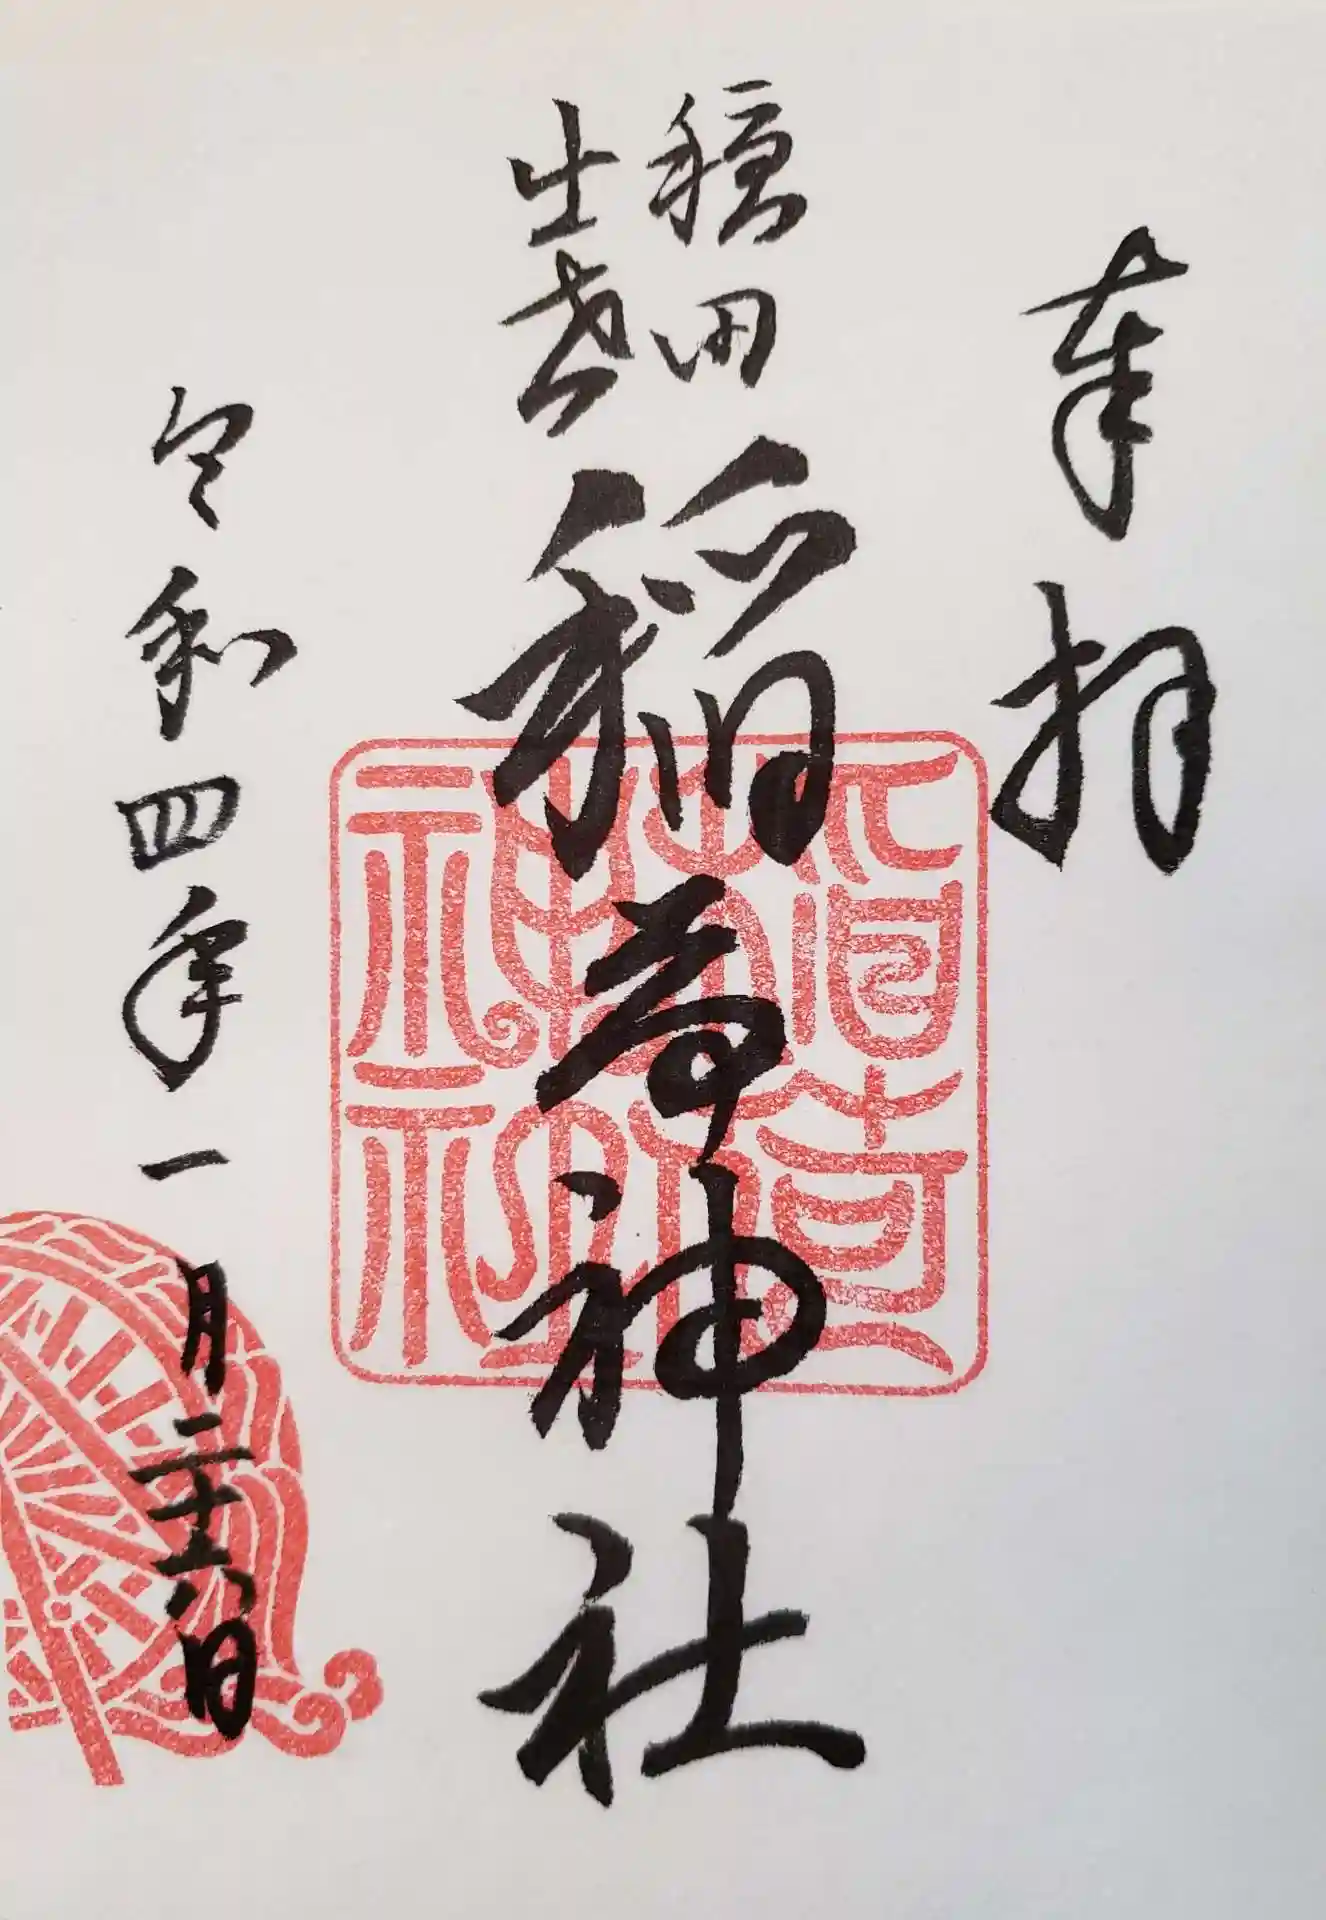 奉拝
穏田
出世
稲荷神社
稲荷神社
令和四年一月二十六日